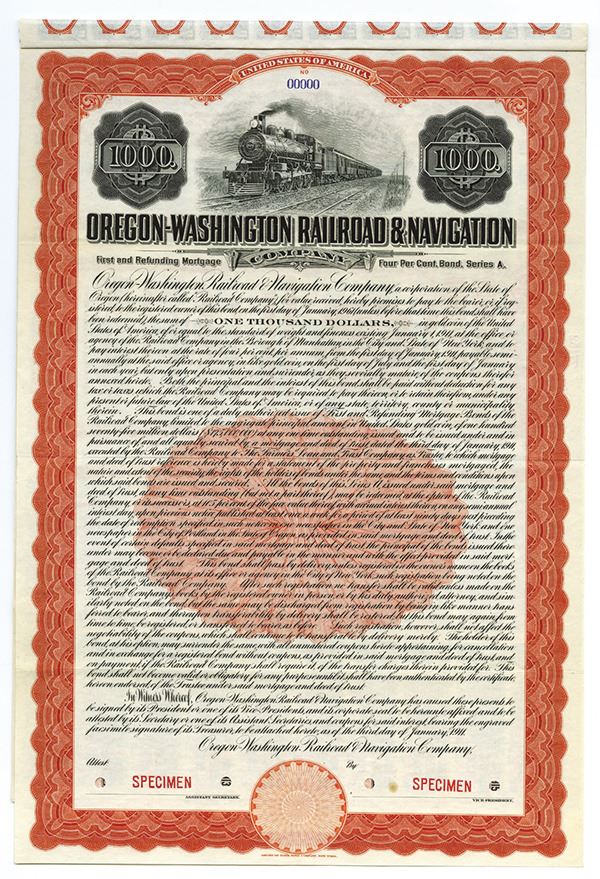 UNITED STATES OF AMERICA
NO
00000
1000.
1000.
OREGON-WASHINGTON RAILROAD & NAVIGATION
COMPANY
First and Refunding Mortgage
Four Per Cent. Bond, Series A.
Oregon-Washington Railroad & Navigation Company, a corporation of the State of
Oregon (hereinafter called "Railroad Company"), for value received, hereby promises to pay to the bearer, or, if reg-
istered, to the registered owner of this bond on the first day of January, 1961 (unless before that time this bond shall have
been redeemed), the sum of ONE THOUSAND DOLLARS, in gold coin of the United
States of America, of or equal to the standard of weight and fineness existing January 1, 1911, at the office or
agency of the Railroad Company in the Borough of Manhattan, in the City and State of New York, and to
pay interest thereon at the rate of four per cent. per annum from the first day of January, 1911, payable semi-
annually at the said office or agency, in like gold coin, on the first day of July and the first day of January
in each year, but only upon presentation and surrender, as they severally mature, of the coupons therefor
annexed hereto. Both the principal and the interest of this bond shall be paid without deduction for any
tax or taxes which the Railroad Company may be required to pay thereon, or to retain therefrom, under any
present or future law of the United States of America, or of any state, territory, county or municipality
therein. This bond is one of a duly authorized issue of First and Refunding Mortgage Bonds of the
Railroad Company, limited to the aggregate principal amount, in United States gold coin, of one hundred
seventy-five million dollars ($175,000,000) at any one time outstanding, issued and to be issued under and in
pursuance of, and all equally secured by, a mortgage and deed of trust, dated the third day of January, 1911,
executed by the Railroad Company to The Farmers' Loan and Trust Company, as Trustee, to which mortgage
and deed of trust reference is hereby made for a statement of the property and franchises mortgaged, the
nature and extent of the security, the rights of the holders of bonds under the same and the terms and conditions upon
which said bonds are issued and secured. All the bonds of this Series A issued under said mortgage and
deed of trust, at any time outstanding (but not a part thereof), may be redeemed at the option of the Railroad
Company at a premium of
interest day, upon previous notice published at least once a week for a period of at least ninety days next preceding
the date of redemption specified in such notice in a newspaper in the City and State of New York and one
newspaper in the City of Portland in the State of Oregon, as provided in said mortgage and deed of trust. In the
event of certain defaults specified in said mortgage and deed of trust the principal of the bonds issued there-
under may become or be declared due and payable in the manner and with the effect provided in said mort-
gage and deed of trust. This bond shall pass by delivery, unless registered in the owner's name on the books
of the Railroad Company at its office or agency in the City of New York, such registry being noted on the
bond by the Railroad Company. After such registration no transfer shall be valid unless made on the
Railroad Company's books by the registered owner, in person or by his duly authorized attorney, and sim-
ilarly noted on the bond; but the same may be discharged from registration by being in like manner trans-
ferred to bearer, and thereupon transferability by delivery shall be restored; but this bond may again from
time to time be registered or transferred to bearer as before. Such registration, however, shall not affect the
negotiability of the coupons, which shall continue to be transferable by delivery merely. The holder of this
bond, at his option, may surrender the same, with all unmatured coupons hereto appertaining, for cancellation
and in exchange for a registered bond without coupons, as provided in said mortgage and deed of trust, and
on payment, if the Railroad Company shall require it, of the transfer charges therein provided for. This
bond shall not become valid or obligatory for any purpose until it shall have been authenticated by the certificate
hereon endorsed of the Trustee under said mortgage and deed of trust.
In Witness Whereof, Oregon-Washington Railroad & Navigation Company has caused these presents to
be signed by its President or one of its Vice-Presidents, and its corporate seal to be hereunto affixed and to be
attested by its Secretary or one of its Assistant Secretaries, and coupons for said interest, bearing the engraved
facsimile signature of its Treasurer, to be attached hereto, as of the third day of January, 1911.
Oregon-Washington Railroad & Navigation Company,
Attest
By
SPECIMEN
SPECIMEN
ASSISTANT SECRETARY.
VICE-PRESIDENT.